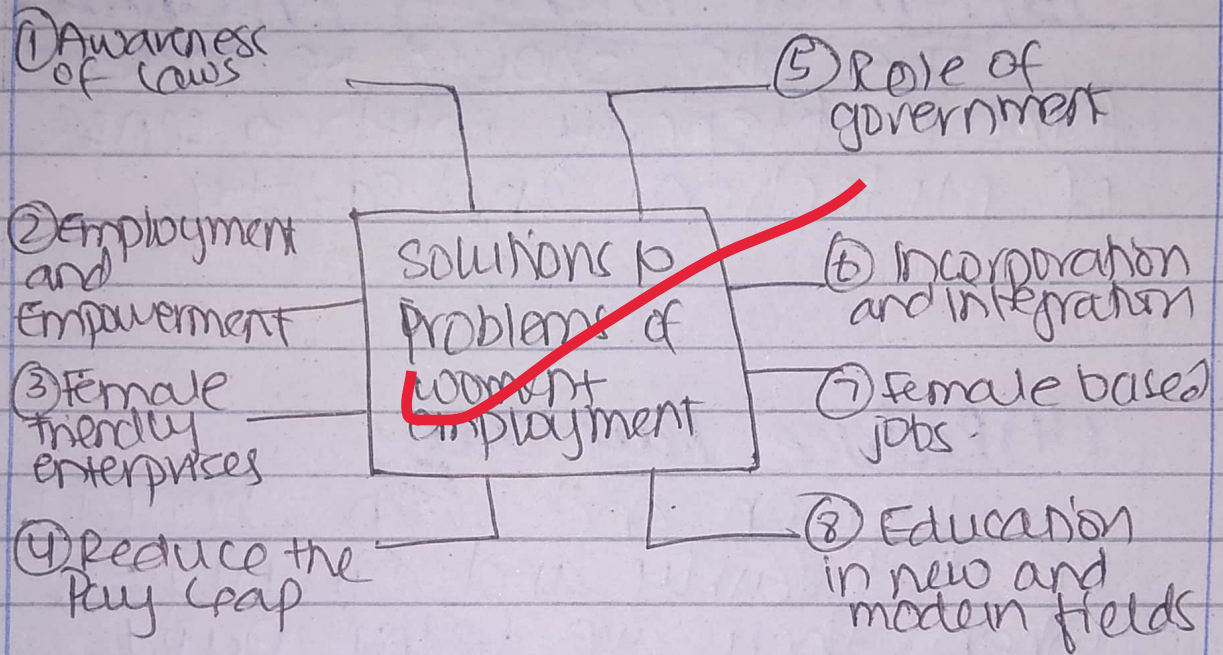 ① Awareness
of Laws
② Employment
and
Empowerment
③ Female
friendly
enterprises
④ Reduce the
Pay Gap
Solutions to
Problems of
employment
⑤ Role of
government
⑥ Incorporation
and integration
⑦ Female based
jobs.
⑧ Education
in new and
modern fields